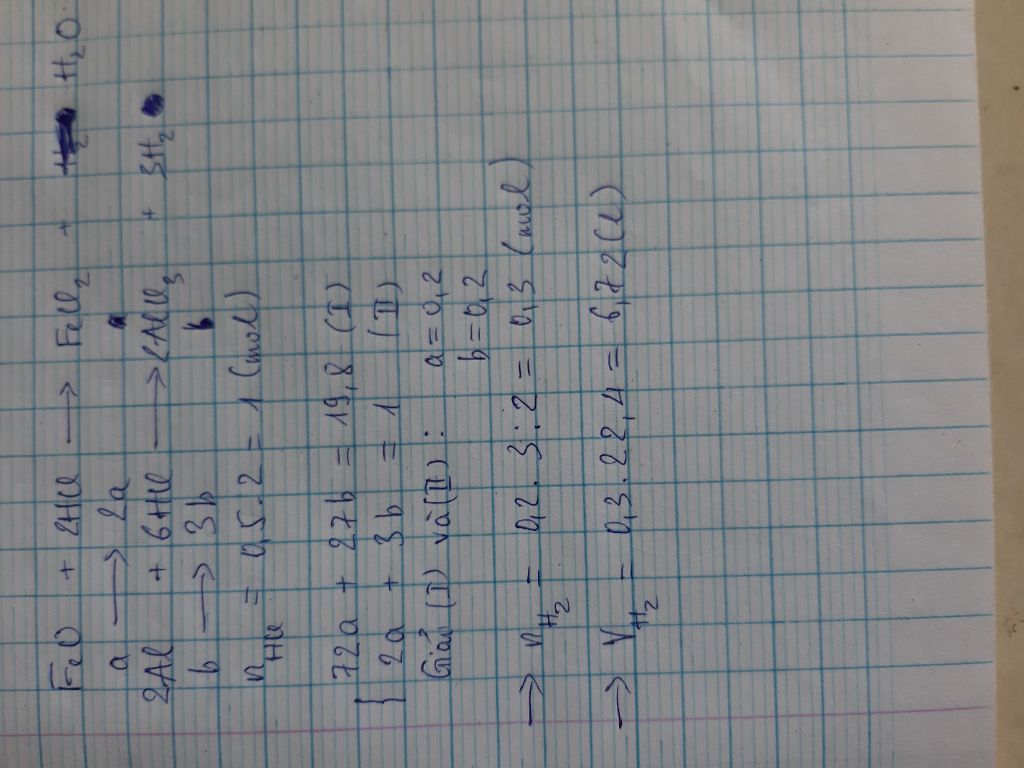 FeO + 2HCl → FeCl₂ + H₂O
a → 2a
2Al + 6HCl → 2AlCl₃ + 3H₂
b → 3b b
n_HCl = 0,5.2 = 1 (mol)
{ 72a + 27b = 19,8 (I)
2a + 3b = 1 (II)
Giải (I) và (II): a = 0,2
b = 0,2
→ n_H₂ = 0,2.3:2 = 0,3 (mol)
→ V_H₂ = 0,3.22,4 = 6,72(l)